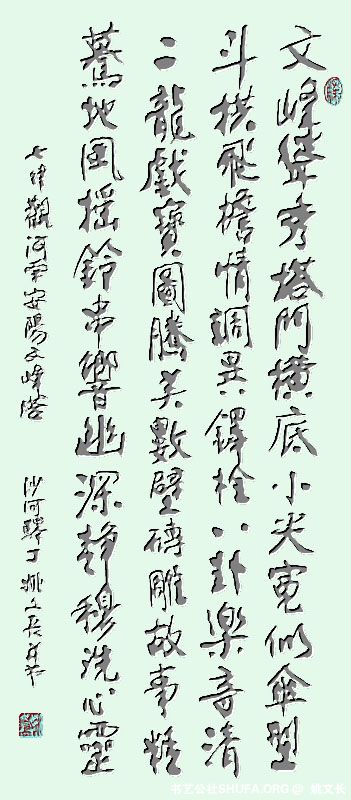 文峰聳秀塔阿横底小尖寬似傘型
斗拱飛檐情調異鐸栓八卦樂音清
二龍戲寶圖騰美數壁磚雕故事精
驀地風搖鈴串響幽深靜穆洗心靈
七律觀河南安陽文峰塔
沙河驛丁姚文長
书艺公社SHUFA.ORG @ 姚文长